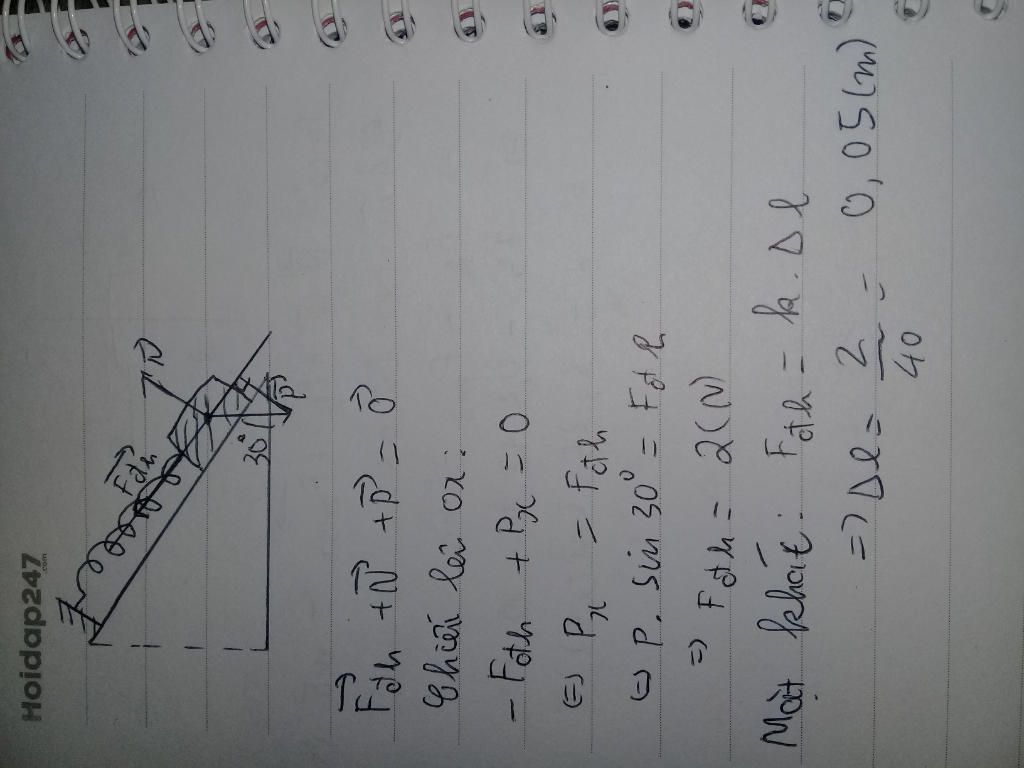 Hoidap247
.com
F⃗đh
N⃗
30°
P⃗
F⃗đh + N⃗ + P⃗ = 0⃗
Chiếu lên ox:
- Fđh + Px = 0
(=) Px = Fđh
(=) P. sin 30° = Fđh
=) Fđh = 2 (N)
Mặt khác: Fđh = k. Δl
=) Δl = 2/40 = 0,05 (m)